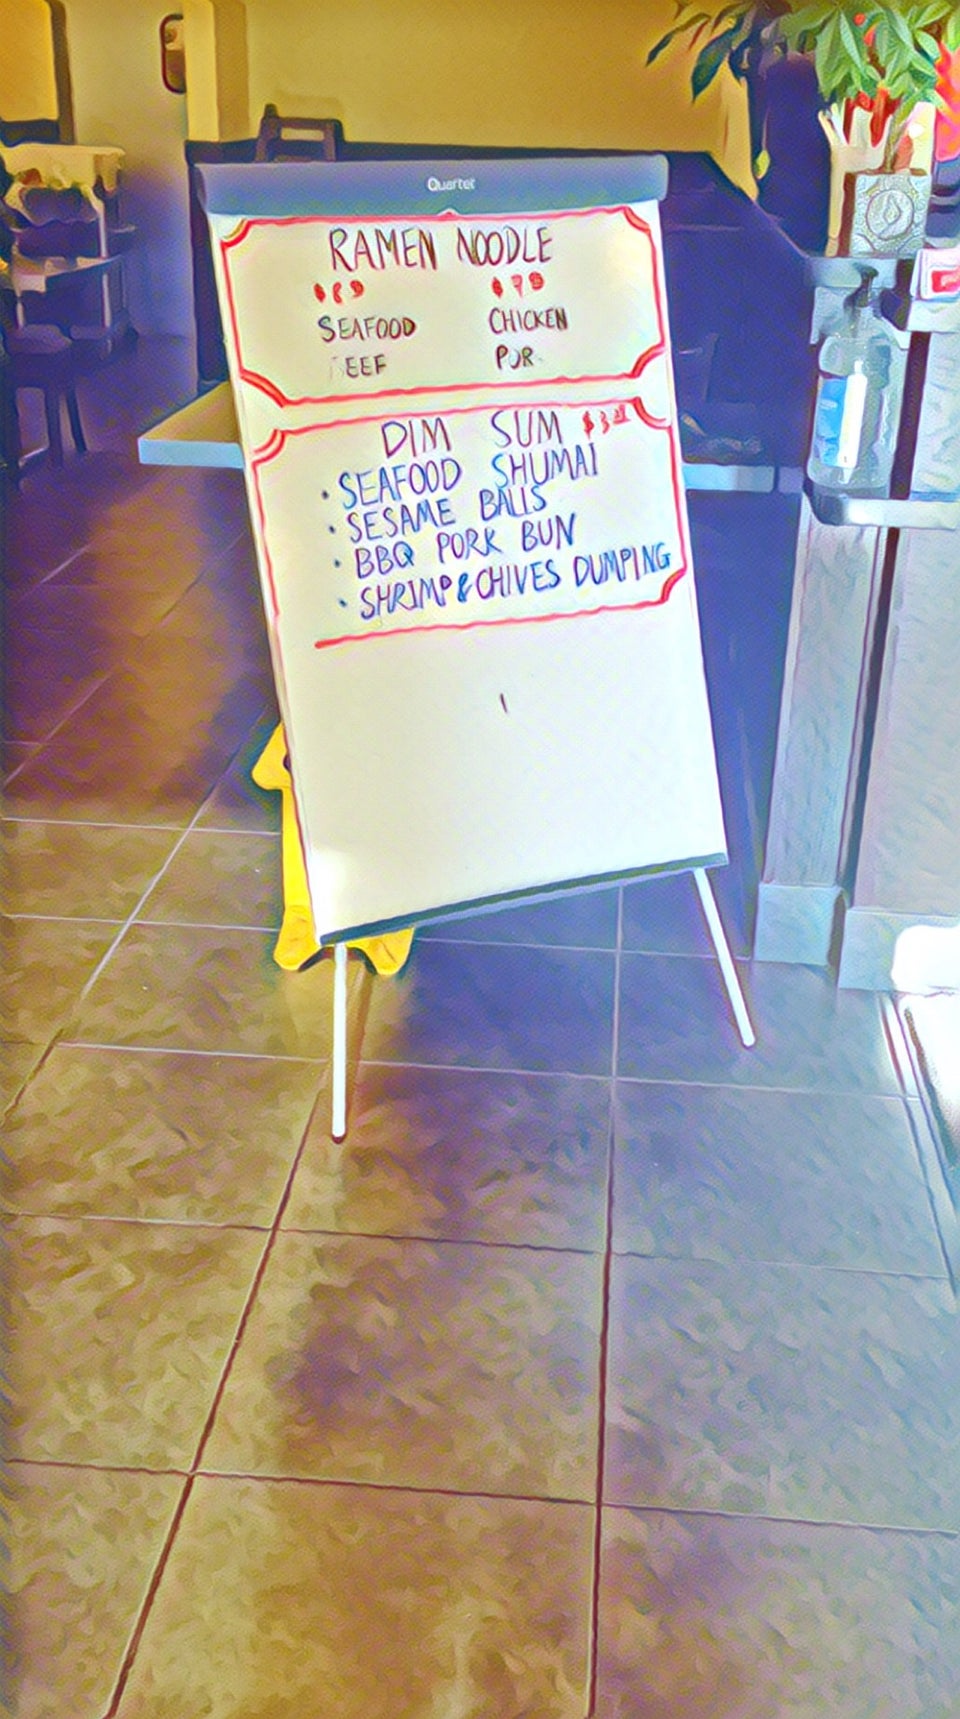 Quartet
RAMEN NOODLE
SEAFOOD CHICKEN
EEF POR
DIM SUM
• SEAFOOD SHUMAI
• SESAME BALLS
• BBQ PORK BUN
• SHRIMP & CHIVES DUMPING